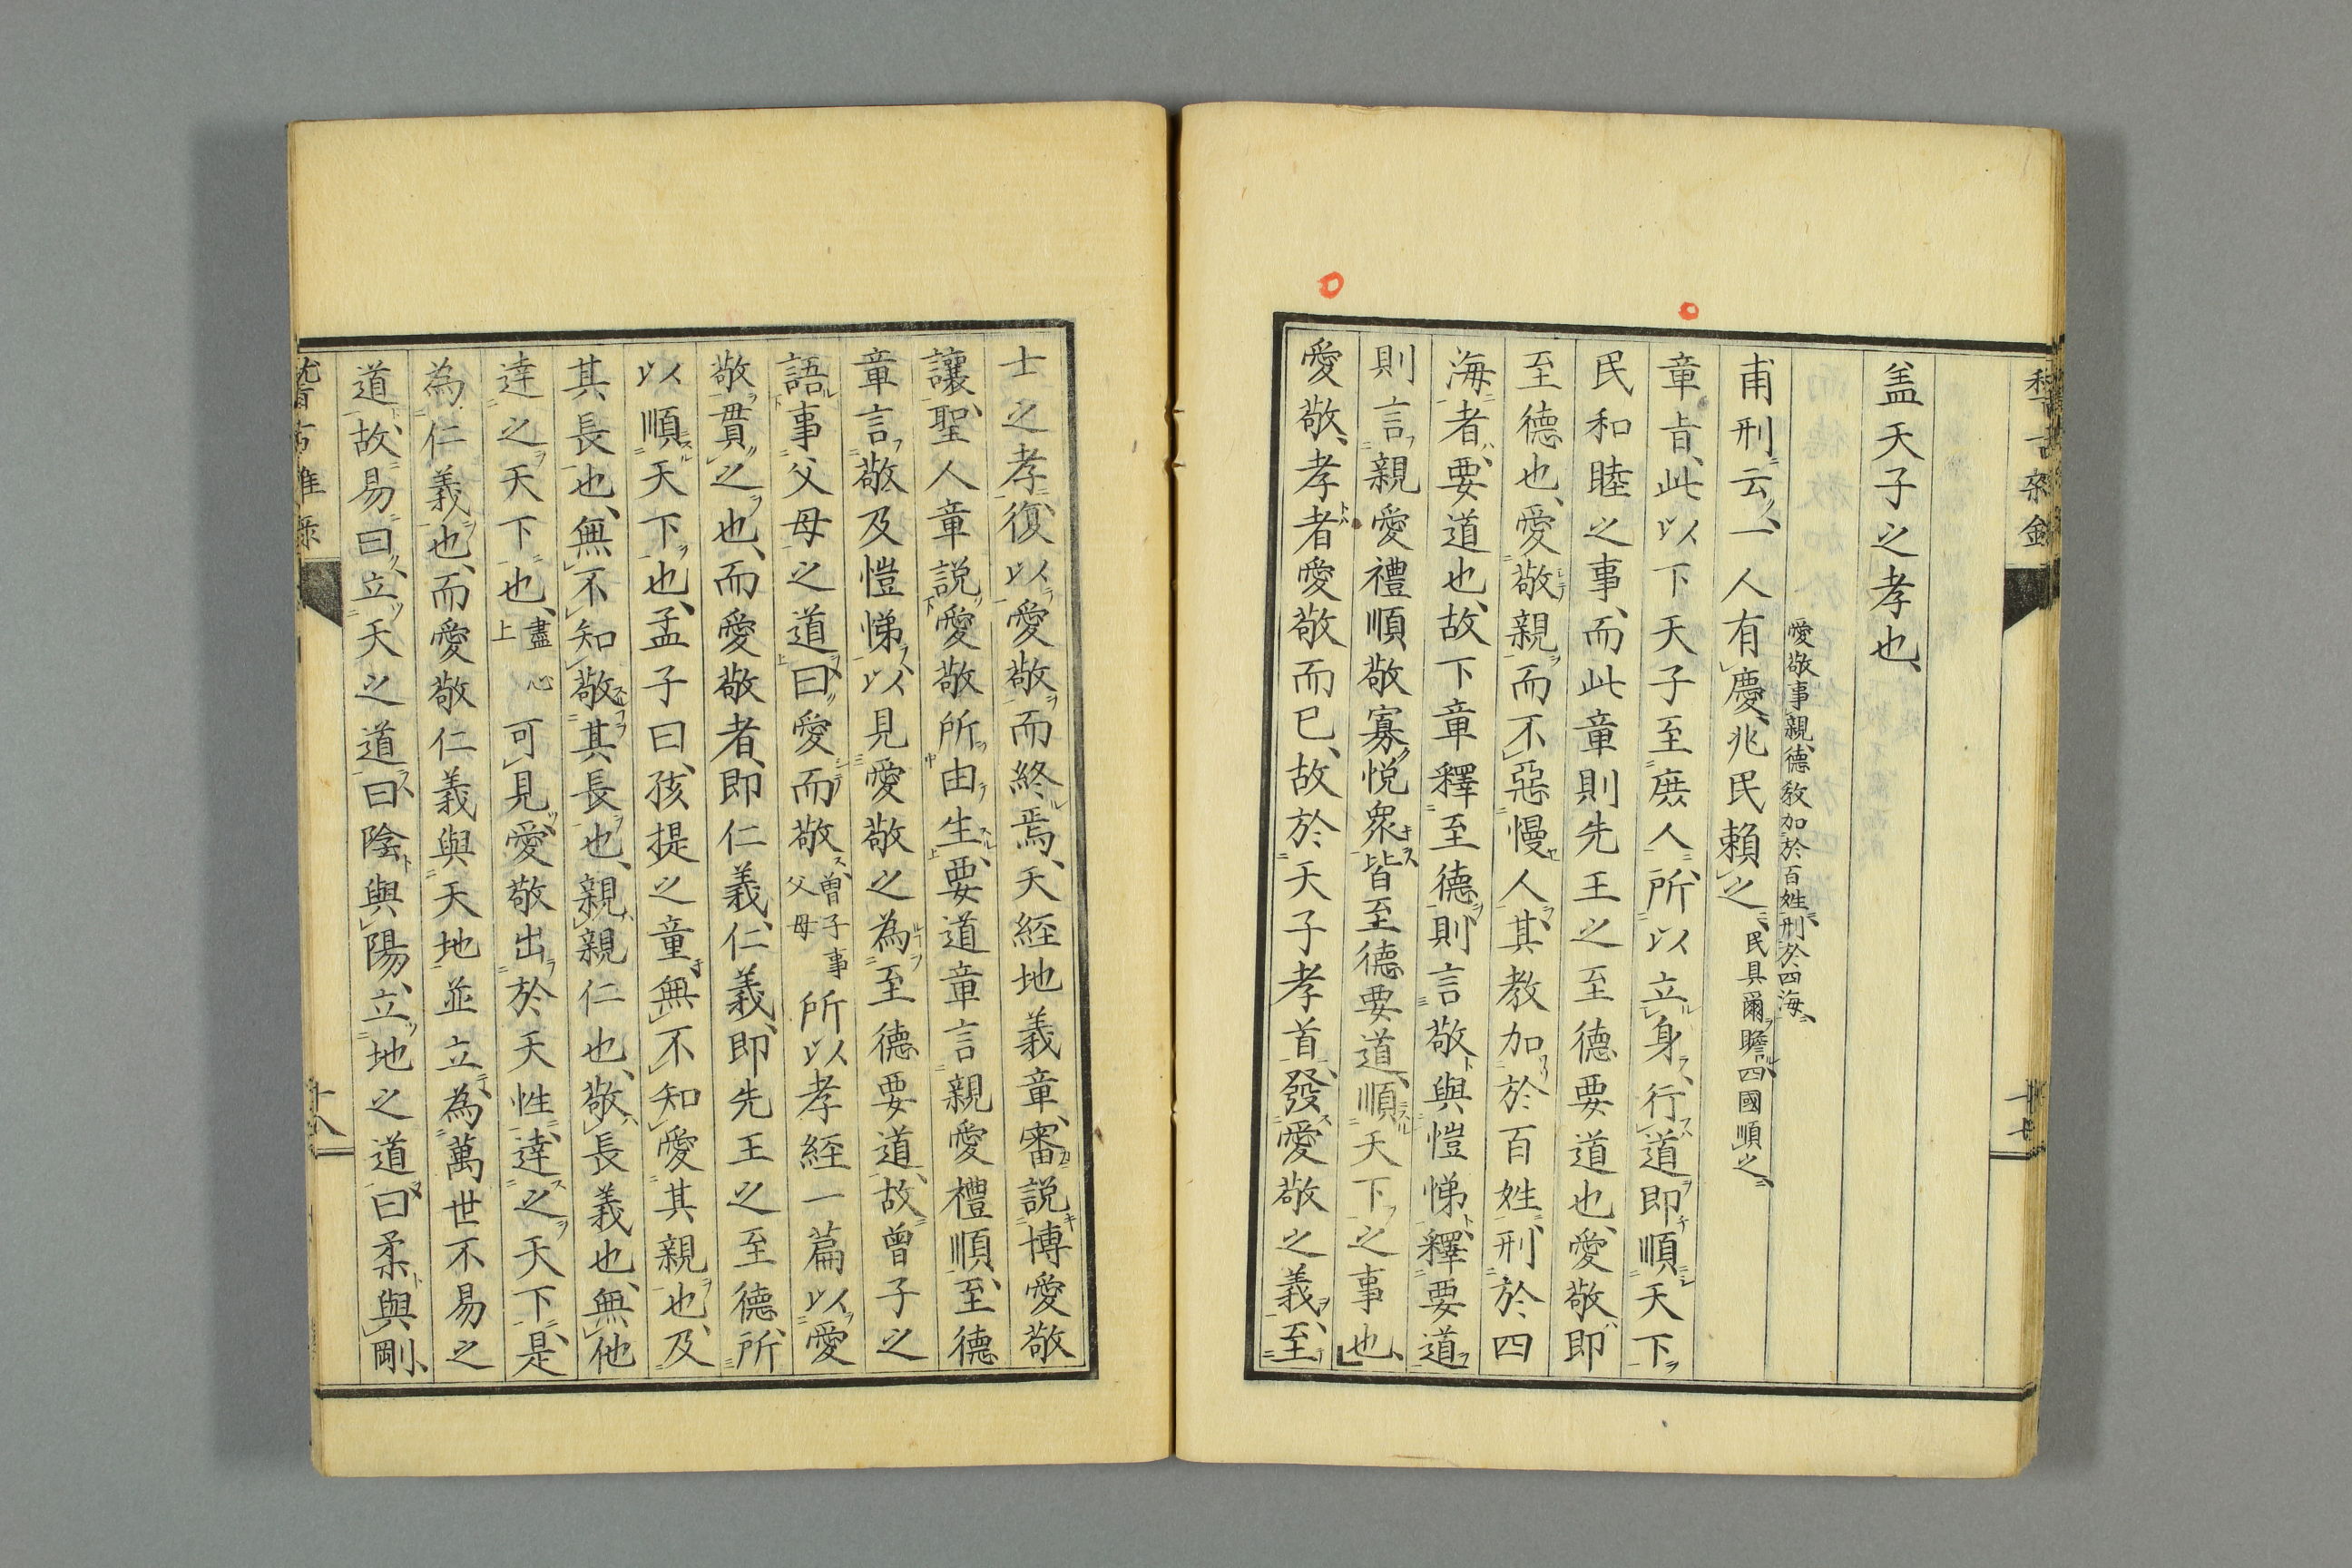 盖天子之孝也、
愛敬事親、德教加於百姓、刑於四海、
甫刑云、一人有慶、兆民賴之、民具爾瞻、四國順之、
章旨、此以下天子至庶人、所以立身行道即順天下
民和睦之事、而此章則先王之至德要道也、愛敬即
至德也、愛敬親而不惡慢人、其教加於百姓、刑於四
海者、要道也、故下章釋至德則言敬與愷悌、釋要道
則言親愛禮順敬寡悅衆、皆至德要道、順天下之事也、
愛敬、孝者愛敬而已、故於天子孝首、發愛敬之義、至
士之孝、復以愛敬而終焉、天経地義章、審說博愛敬
讓、聖人章說愛敬所由生、要道章言親愛禮順、至德
章言敬及愷悌、以見愛敬之為至德要道、故曾子之
語事父母之道曰、愛而敬、曾子事父母所以孝経一篇以愛
敬貫之也、而愛敬者、即仁義、仁義、即先王之至德、所
以順天下也、孟子曰、孩提之童無不知愛其親也、及
其長也、無不知敬其長也、親親仁也、敬長義也、無他
達之天下也、盡心上可見愛敬出於天性、達之天下、是
為仁義也、而愛敬仁義與天地並立、為萬世不易之
道、故易曰、立天之道曰陰與陽、立地之道曰柔與剛、
十八